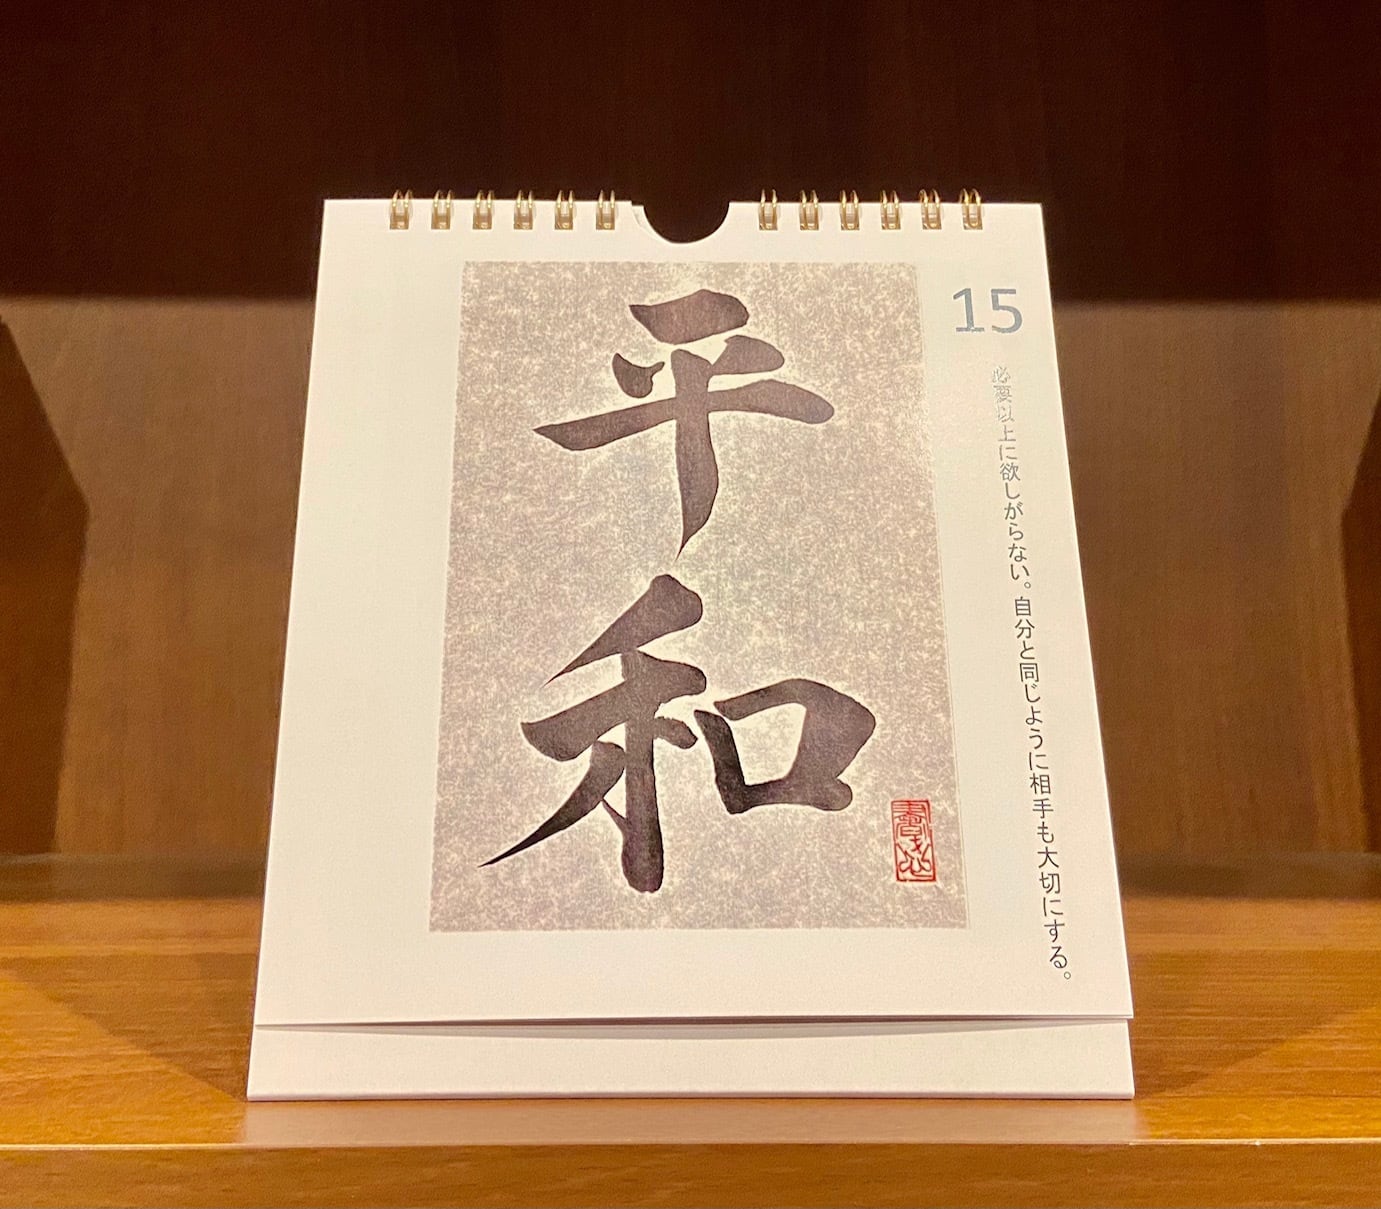 平和
15
必要以上に欲しがらない。自分と同じように相手も大切にする。